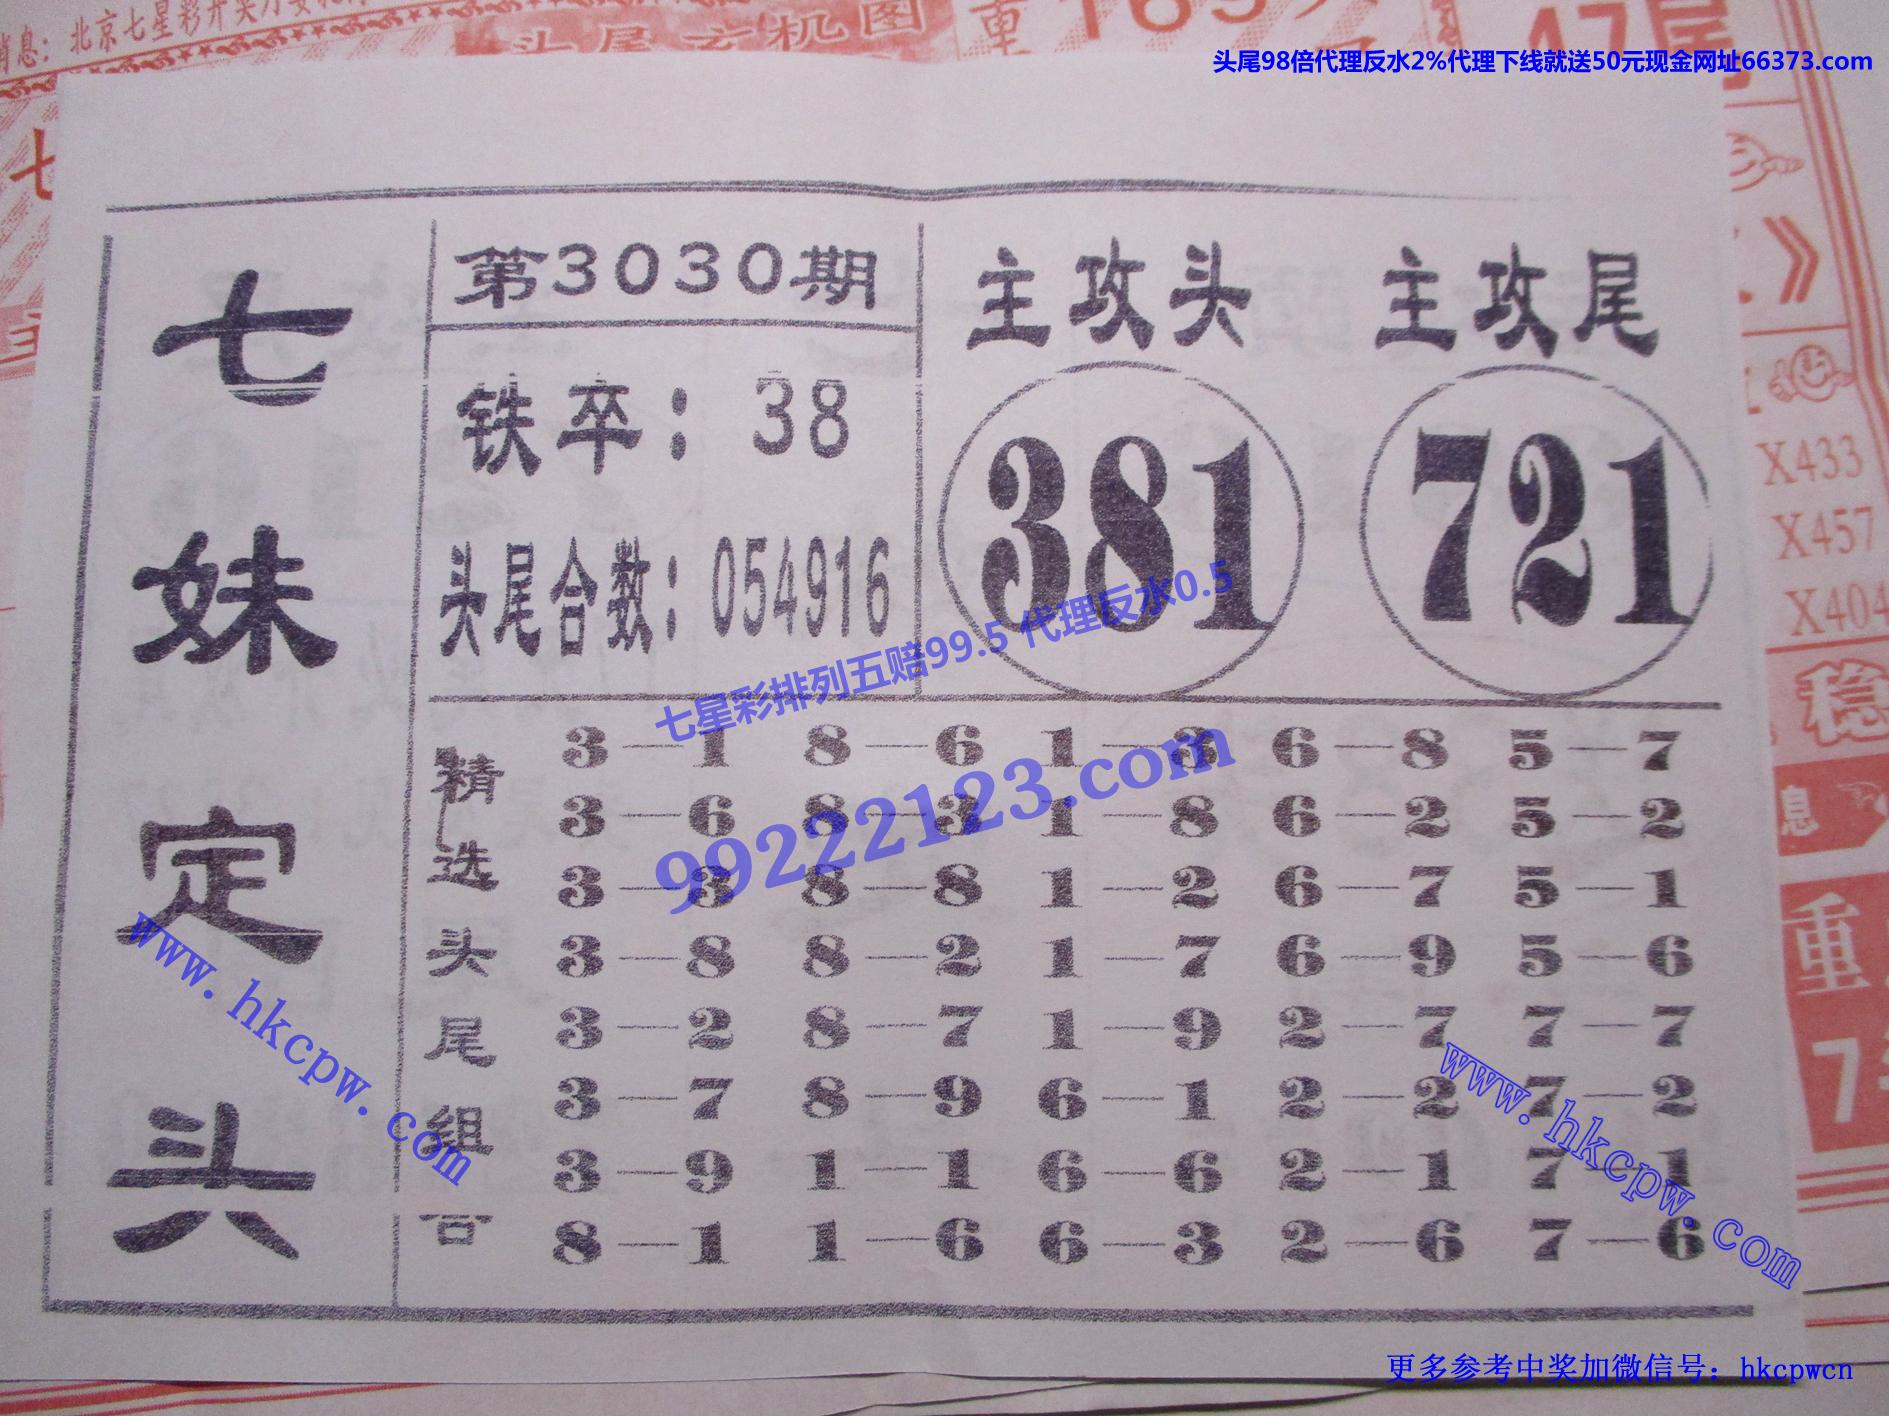 消息：北京七星彩开奖
头尾玄机图
重
47尾
头尾98倍代理反水2%代理下线就送50元现金网址66373.com
七妹定头
第3030期
铁卒：38
头尾合数：054916
主攻头
381
主攻尾
721
七星彩排列五赔99.5 代理反水0.5
99222123.com
精选头尾组合
3—1 8—6 1—3 6—8 5—7
3—6 8—3 1—8 6—2 5—2
3—3 8—8 1—2 6—7 5—1
3—8 8—2 1—7 6—9 5—6
3—2 8—7 1—9 2—7 7—7
3—7 8—9 6—1 2—2 7—2
3—9 1—1 6—6 2—1 7—1
8—1 1—6 6—3 2—6 7—6
www.hkcpw.com
www.hkcpw.com
X433
X457
X404
稳
息
重
7
更多参考中奖加微信号：hkcpwcn